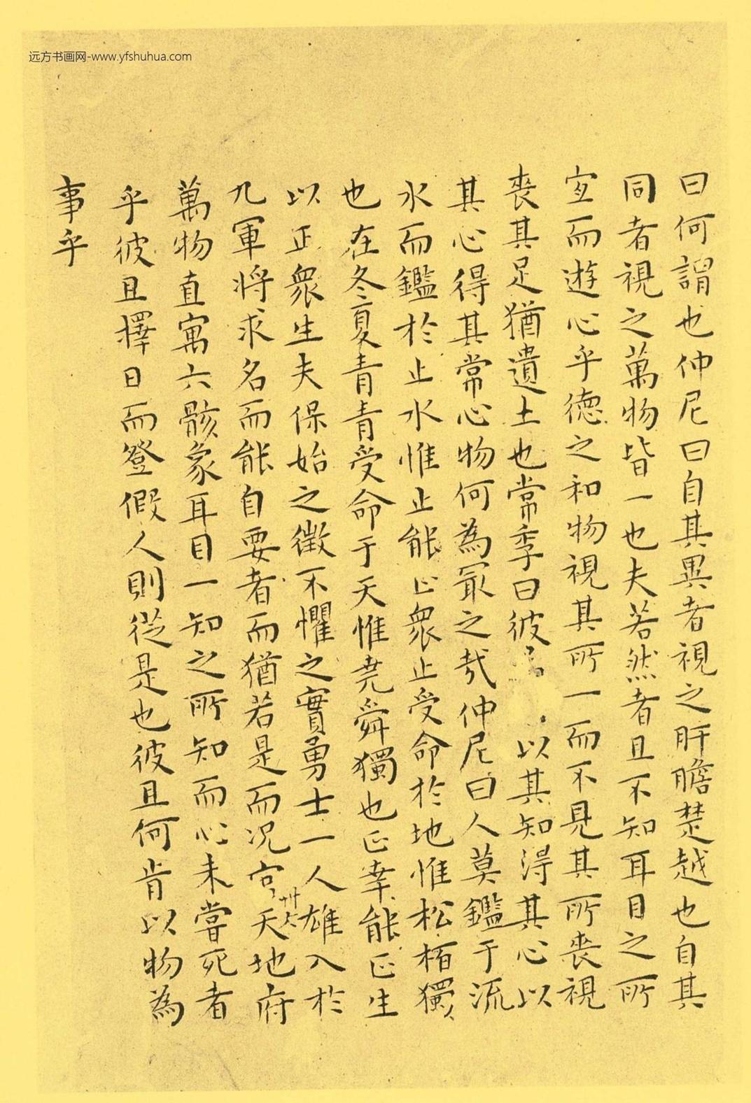 远方书画网-www.yfshuhua.com
曰何謂也仲尼曰自其異者視之肝膽楚越也自其
同者視之萬物皆一也夫若然者且不知耳目之所
宜而遊心乎德之和物視其所一而不見其所喪視
喪其足猶遺土也常季曰彼以其知得其心以
其心得其常心物何為冣之哉仲尼曰人莫鑑于流
水而鑑於止水惟止能止衆止受命於地惟松栢獨
也在冬夏青青受命于天惟堯舜獨也正幸能正生
以正衆生夫保始之徵不懼之實勇士一人雄入於
九軍將求名而能自要者而猶若是而况官天地府
萬物直寓六骸象耳目一知之所知而心未嘗死者
乎彼且擇日而登假人則從是也彼且何肯以物為
事乎